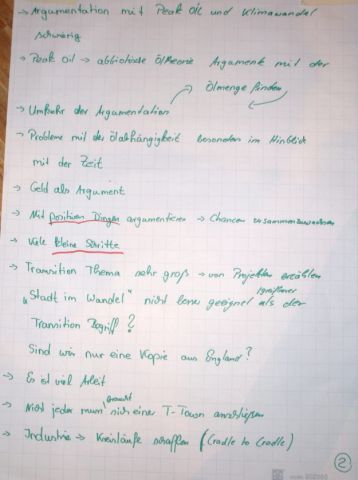 → Argumentation mit Peak Oil und Klimawandel
schwierig
→ Peak Oil → abbiotische Öltheorie Argument mit der
Ölmenge finden
→ Umkehr der Argumentation
→ Probleme mit der Ölabhängigkeit besonders im Hinblick
mit der Zeit
→ Geld als Argument
→ Mit positiven Dingen argumentieren → Chancen
→ Viele kleine Schritte
→ Transition Thema sehr groß → von Projekten erzählen
"Stadt im Wandel" nicht besser geeignet als der
Transition Begriff?
Sind wir nur eine Kopie aus England?
→ Es ist viel Arbeit
→ Nicht jeder muss sich einer T-Town anschließen
→ Industrie → Kreisläufe schaffen (Cradle to Cradle)
2